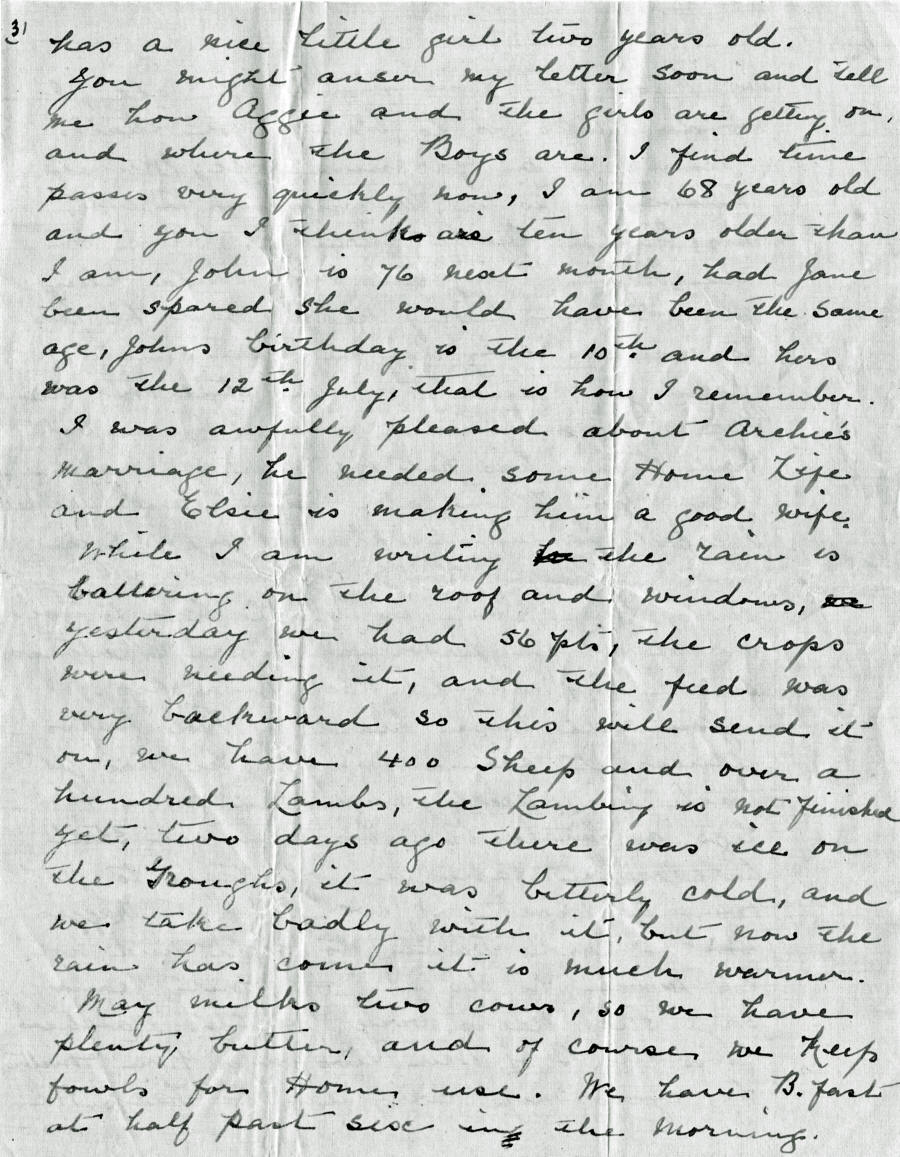 3)
has a nice little girl two years old.
You might anser my letter soon and tell
me how Aggie and the girls are getting on,
and where the Boys are. I find time
passes very quickly now, I am 68 years old
and you I think are ten years older than
I am, John is 76 next month, had Jane
been spared she would have been the same
age, Johns birthday is the 10th and hers
was the 12th July, that is how I remember.
I was awfully pleased about Archie's
marriage, he needed some Home Life
and Elsie is making him a good wife.
While I am writing the rain is
battering on the roof and windows,
yesterday we had 56 pts, the crops
were needing it, and the feed was
very backward so this will send it
on, we have 400 Sheep and over a
hundred Lambs, the Lambing is not finished
yet, two days ago there was ice on
the Troughs, it was bitterly cold, and
we take badly with it, but now the
rain has come it is much warmer.
May milks two cows, so we have
plenty butter, and of course we keep
fowls for Home use. We have B.fast
at half past six in the morning.